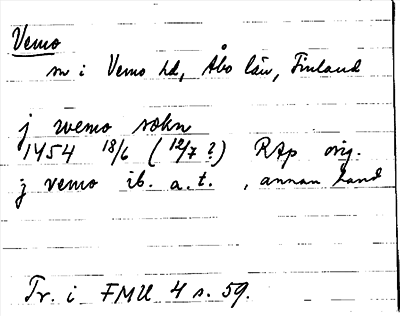 Vemo
sn i Vemo hd, Åbo län, Finland
j wemo sokn
1454 18/6 (12/7 ?) RAp orig.
j vemo ib. a.t., annan hand
Tr. i FMU 4 s. 59.